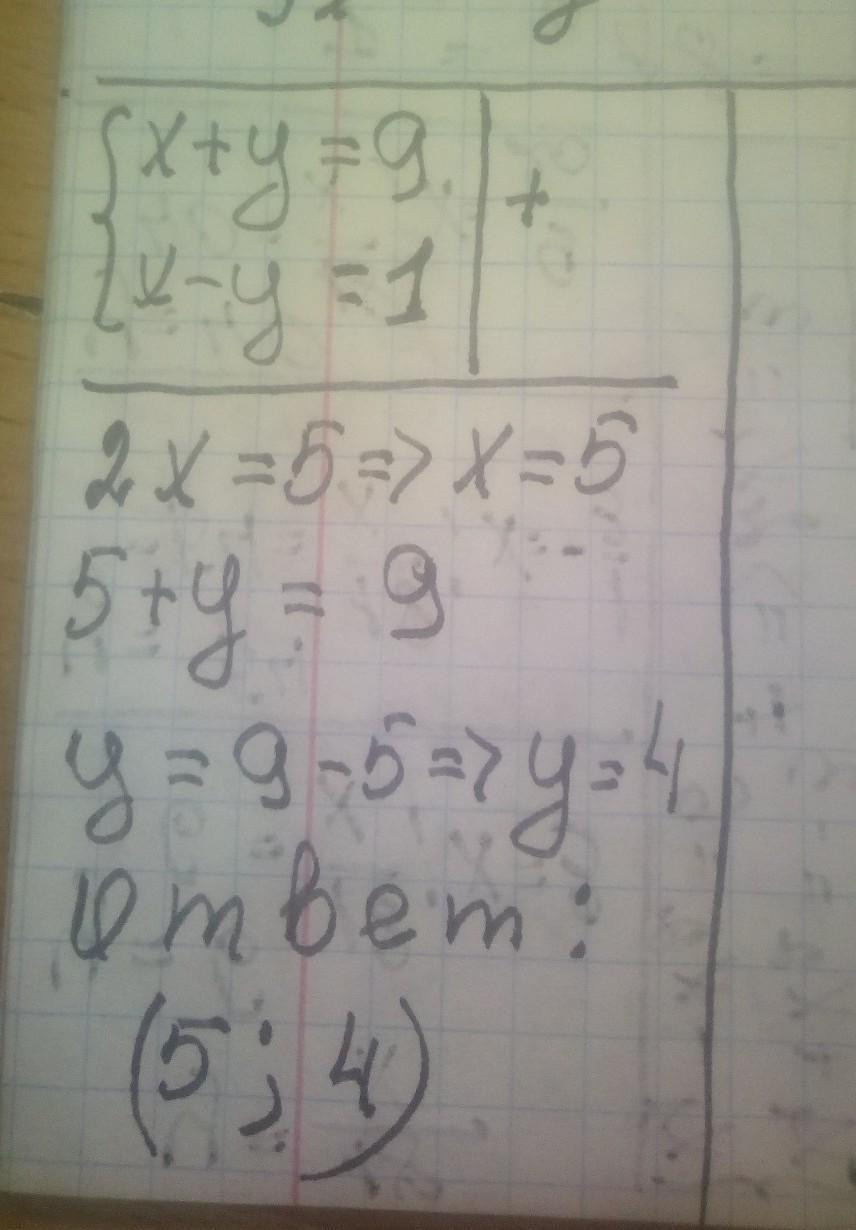 x+y=9
+
x-y=1
2x=5=>x=5
5+y=9
y=9-5=>y=4
Ответ:
(5; 4)